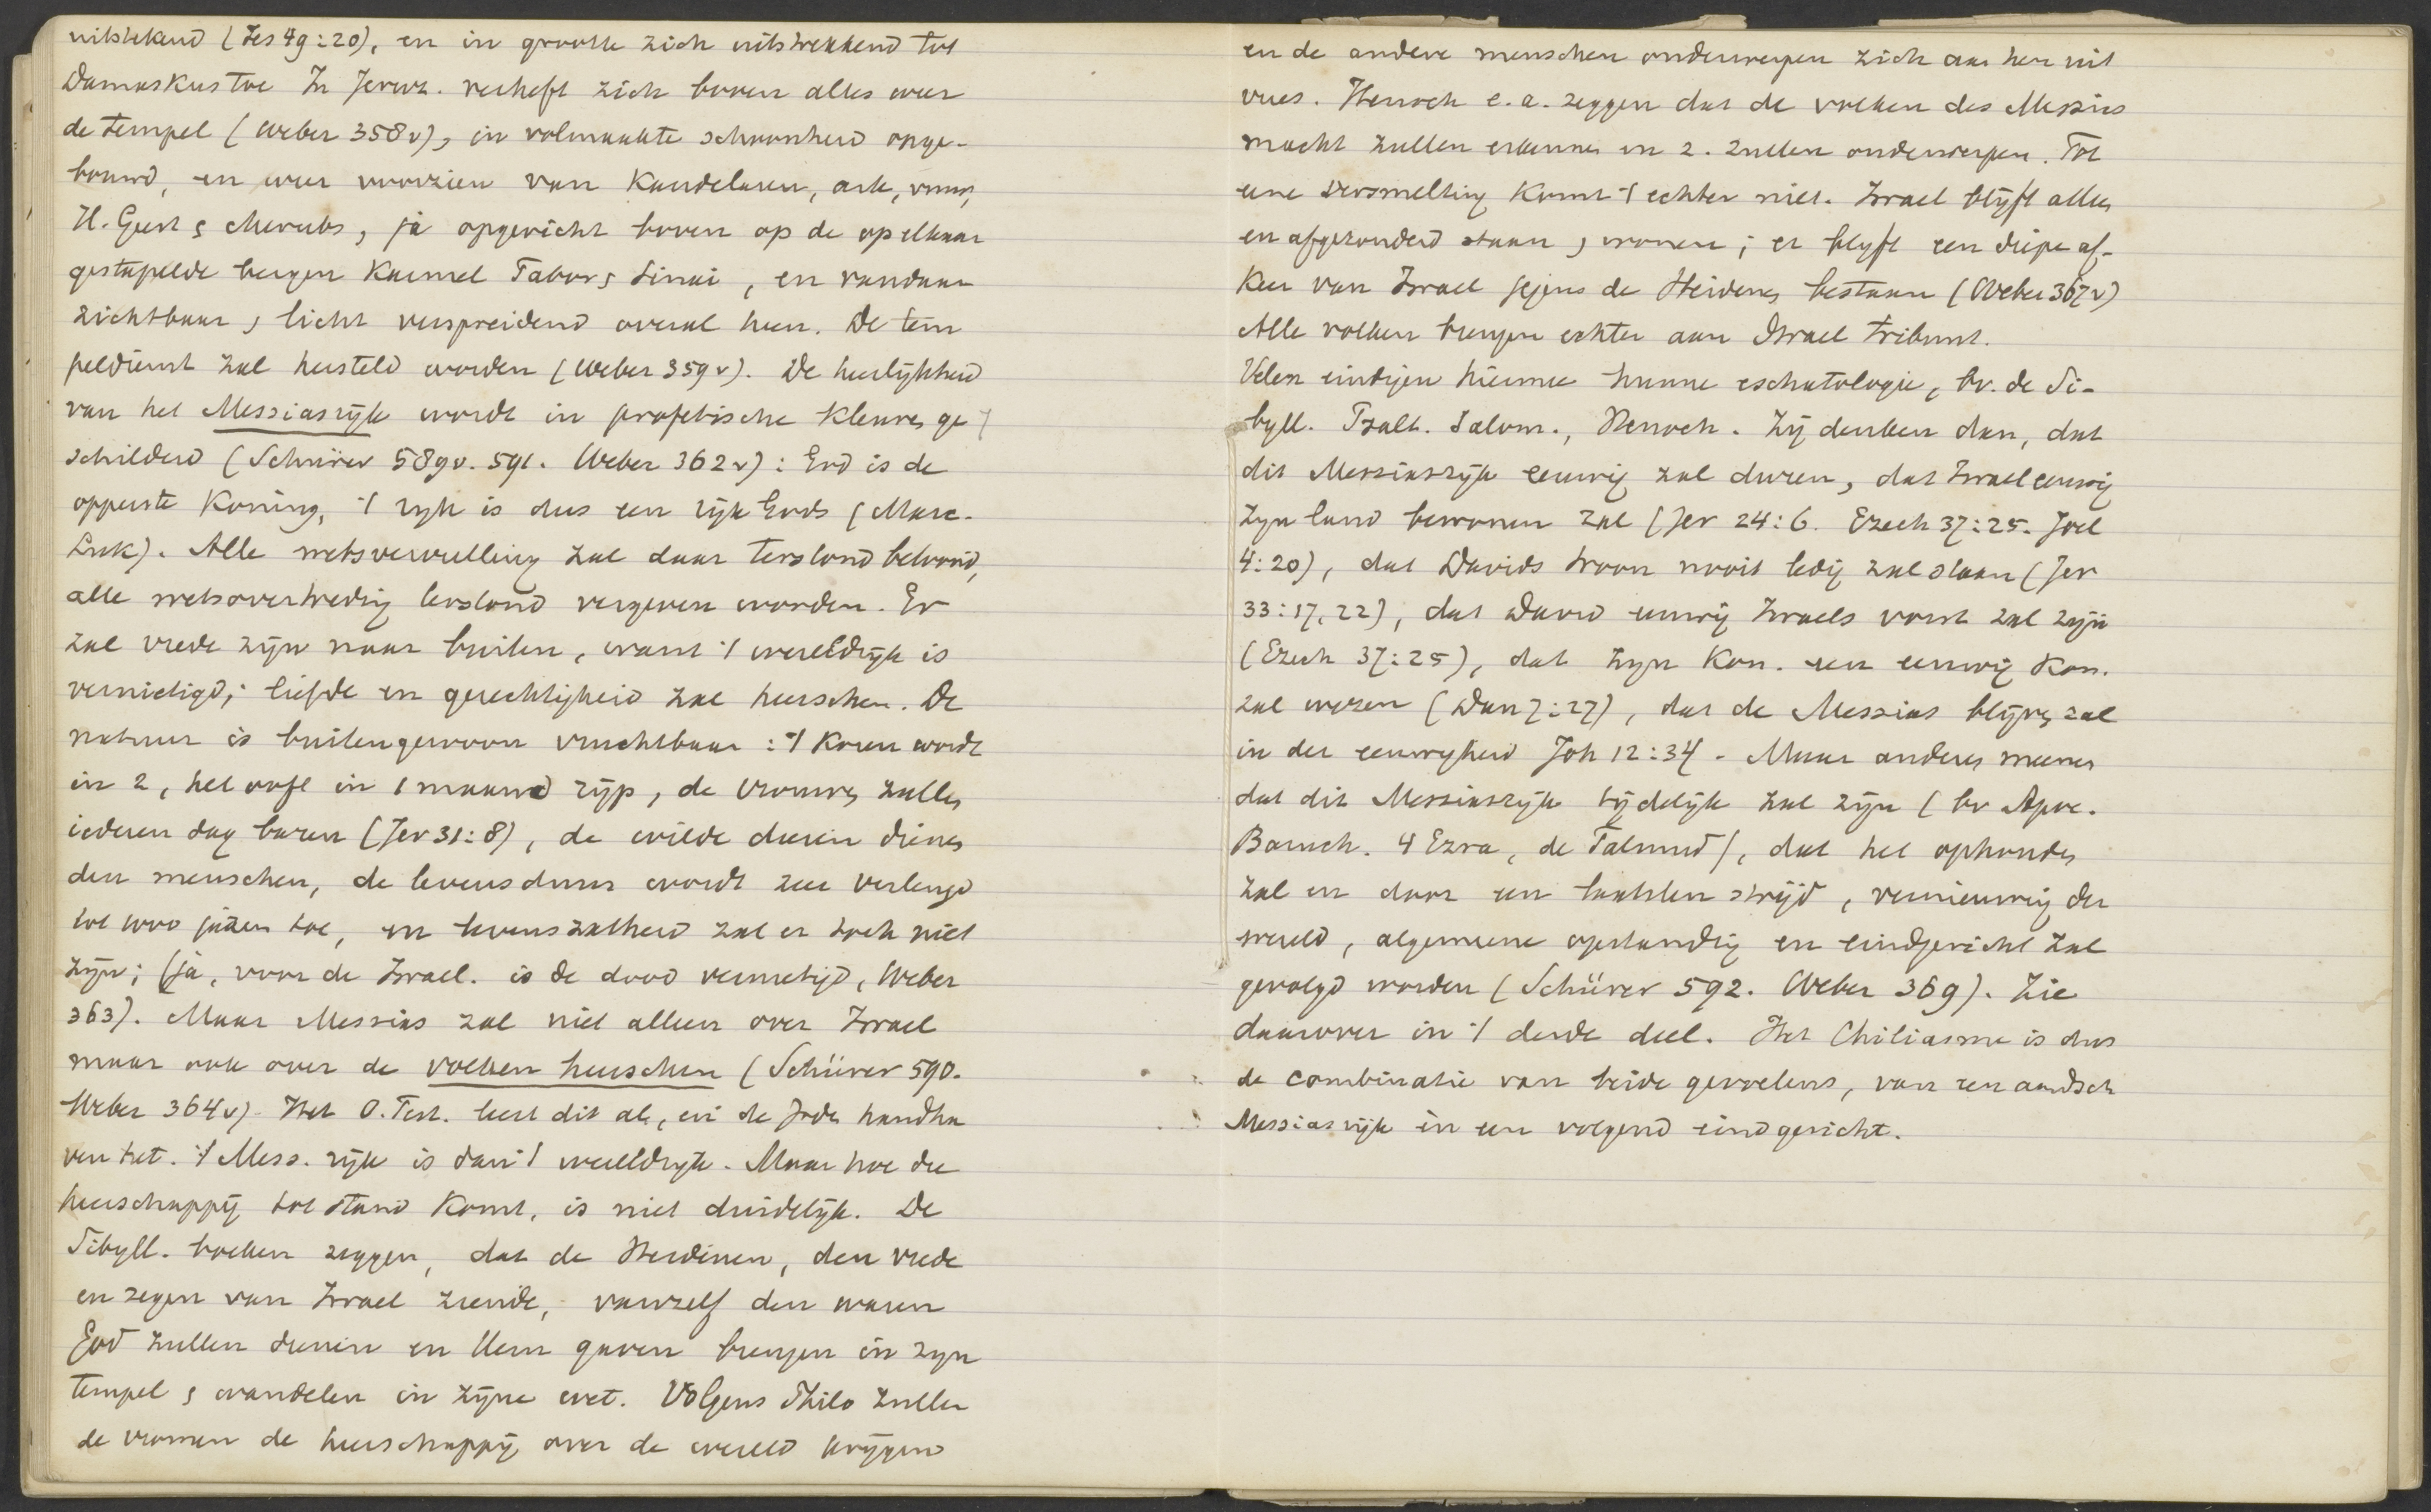 uitstekend (Jes 49:20), en in grootte zich uitstrekkend tot
Damaskus toe In Jeruz. verheft zich boven alles weer
de tempel (Weber 358v), in volmaakte schoonheid opge-
bouwd, en weer voorzien van Kandelaren, ark, vuur,
H. Geest & cherubs, ja opgericht boven op de op elkaar
gestapelde bergen Karmel Tabor & Sinai, en vandaar
zichtbaar & licht verspreidend overal heen. De tem
peldienst zal hersteld worden (Weber 359v). De heerlijkheid
van het Messiasrijk wordt in profetische kleuren ge
schilderd (Schürer 589v. 591. Weber 362v): God is de
opperste Koning, 't rijk is dus een rijk Gods (Marc.
Luk). Alle wetsvervulling zal daar terstond beloond,
alle wetsovertreding terstond vergeven worden. Er
zal vrede zijn naar buiten, want 't wereldrijk is
vernietigd; liefde en gerechtigheid zal heerschen. De
natuur is buitengewoon vruchtbaar: 't Koren wordt
in 2, het ooft in 1 maand rijp, de vrouwen zullen
iederen dag baren (Jer 31:8), de wilde dieren dienen
den menschen, de levensduur wordt zeer verlengd
tot 1000 jaren toe, en levenszatheid zal er toch niet
zijn; (ja, voor de Israel. is de dood vernietigd, Weber
363). Maar Messias zal niet alleen over Israel
maar ook over de volken heerschen (Schürer 590.
Weber 364v). Het O. Test. leert dit al, en de Joden handha
ven het. 't Mess. rijk is dan 't wereldrijk. Maar hoe die
heerschappij tot stand komt, is niet duidelijk. De
Sibyll. boeken zeggen, dat de Heidenen, den vrede
en zegen van Israel ziende, vanzelf den waren
God zullen dienen en Hem gaven brengen in zijn
tempel & wandelen in zijne wet. Volgens Philo zullen
de vromen de heerschappij over de wereld krijgen
en de andere menschen onderwerpen zich aan hen uit
vrees. Henoch e.a. zeggen dat de volken des Messias
macht zullen erkennen en z. zullen onderwerpen. Tot
eene versmelting komt 't echter niet. Israel blijft alleen
en afgezonderd staan & wonen; er blijft een diepe af-
keer van Israel jegens de Heidenen bestaan (Weber 367v)
Alle volken brengen echter aan Israel tribuut.
Velen eindigen hiermee hunne eschatologie, bv. de Si-
byll. Psalt. Salom., Henoch. Zij denken dan, dat
dit Messiasrijk eeuwig zal duren, dat Israel eeuwig
zijn land bewonen zal (Jer 24:6. Ezech 37:25. Joel
4:20), dat Davids troon nooit ledig zal staan (Jer
33:17, 22), dat David eeuwig Israels vorst zal zijn
(Ezech 37:25), dat zijn Kon. een eeuwig Kon.
zal wezen (Dan 7:27), dat de Messias blijven zal
in der eeuwigheid Joh 12:34. Maar anderen meenen
dat dit Messiasrijk tijdelijk zal zijn (bv Apoc.
Baruch. 4 Ezra, de Talmud), dat het ophouden
zal en door een laatsten strijd, vernieuwing der
wereld, algemeene opstanding en eindgericht zal
gevolgd worden (Schürer 592. Weber 369). Zie
daarover in 't derde deel. Het Chiliasme is dus
de combinatie van beide gevoelens, van een aardsch
Messiasrijk en een volgend eindgericht.